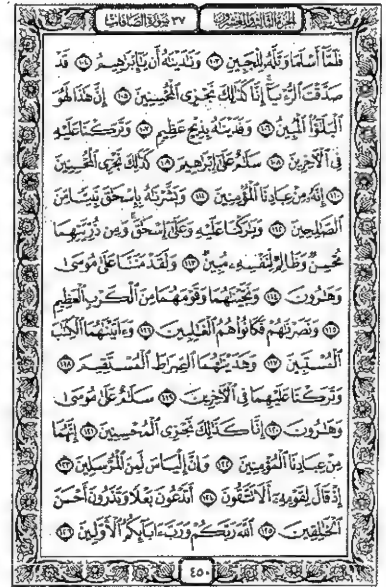 الجزء الثالث والعشرون ٣٧ سورة الصافات
فَلَمَّآ أَسْلَمَا وَتَلَّهُۥ لِلْجَبِينِ ۝١٠٣ وَنَٰدَيْنَٰهُ أَن يَٰٓإِبْرَٰهِيمُ ۝١٠٤ قَدْ
صَدَّقْتَ ٱلرُّءْيَآ إِنَّا كَذَٰلِكَ نَجْزِى ٱلْمُحْسِنِينَ ۝١٠٥ إِنَّ هَٰذَا لَهُوَ
ٱلْبَلَٰٓؤُا۟ ٱلْمُبِينُ ۝١٠٦ وَفَدَيْنَٰهُ بِذِبْحٍ عَظِيمٍ ۝١٠٧ وَتَرَكْنَا عَلَيْهِ
فِى ٱلْءَاخِرِينَ ۝١٠٨ سَلَٰمٌ عَلَىٰٓ إِبْرَٰهِيمَ ۝١٠٩ كَذَٰلِكَ نَجْزِى ٱلْمُحْسِنِينَ
۝١١٠ إِنَّهُۥ مِنْ عِبَادِنَا ٱلْمُؤْمِنِينَ ۝١١١ وَبَشَّرْنَٰهُ بِإِسْحَٰقَ نَبِيًّا مِّنَ
ٱلصَّٰلِحِينَ ۝١١٢ وَبَٰرَكْنَا عَلَيْهِ وَعَلَىٰٓ إِسْحَٰقَ وَمِن ذُرِّيَّتِهِمَا
مُحْسِنٌ وَظَالِمٌ لِّنَفْسِهِۦ مُبِينٌ ۝١١٣ وَلَقَدْ مَنَنَّا عَلَىٰ مُوسَىٰ
وَهَٰرُونَ ۝١١٤ وَنَجَّيْنَٰهُمَا وَقَوْمَهُمَا مِنَ ٱلْكَرْبِ ٱلْعَظِيمِ
۝١١٥ وَنَصَرْنَٰهُمْ فَكَانُوا۟ هُمُ ٱلْغَٰلِبِينَ ۝١١٦ وَءَاتَيْنَٰهُمَا ٱلْكِتَٰبَ
ٱلْمُسْتَبِينَ ۝١١٧ وَهَدَيْنَٰهُمَا ٱلصِّرَٰطَ ٱلْمُسْتَقِيمَ ۝١١٨
وَتَرَكْنَا عَلَيْهِمَا فِى ٱلْءَاخِرِينَ ۝١١٩ سَلَٰمٌ عَلَىٰ مُوسَىٰ
وَهَٰرُونَ ۝١٢٠ إِنَّا كَذَٰلِكَ نَجْزِى ٱلْمُحْسِنِينَ ۝١٢١ إِنَّهُمَا
مِنْ عِبَادِنَا ٱلْمُؤْمِنِينَ ۝١٢٢ وَإِنَّ إِلْيَاسَ لَمِنَ ٱلْمُرْسَلِينَ ۝١٢٣
إِذْ قَالَ لِقَوْمِهِۦٓ أَلَا تَتَّقُونَ ۝١٢٤ أَتَدْعُونَ بَعْلًا وَتَذَرُونَ أَحْسَنَ
ٱلْخَٰلِقِينَ ۝١٢٥ ٱللَّهَ رَبَّكُمْ وَرَبَّ ءَابَآئِكُمُ ٱلْأَوَّلِينَ ۝١٢٦
٤٥٠